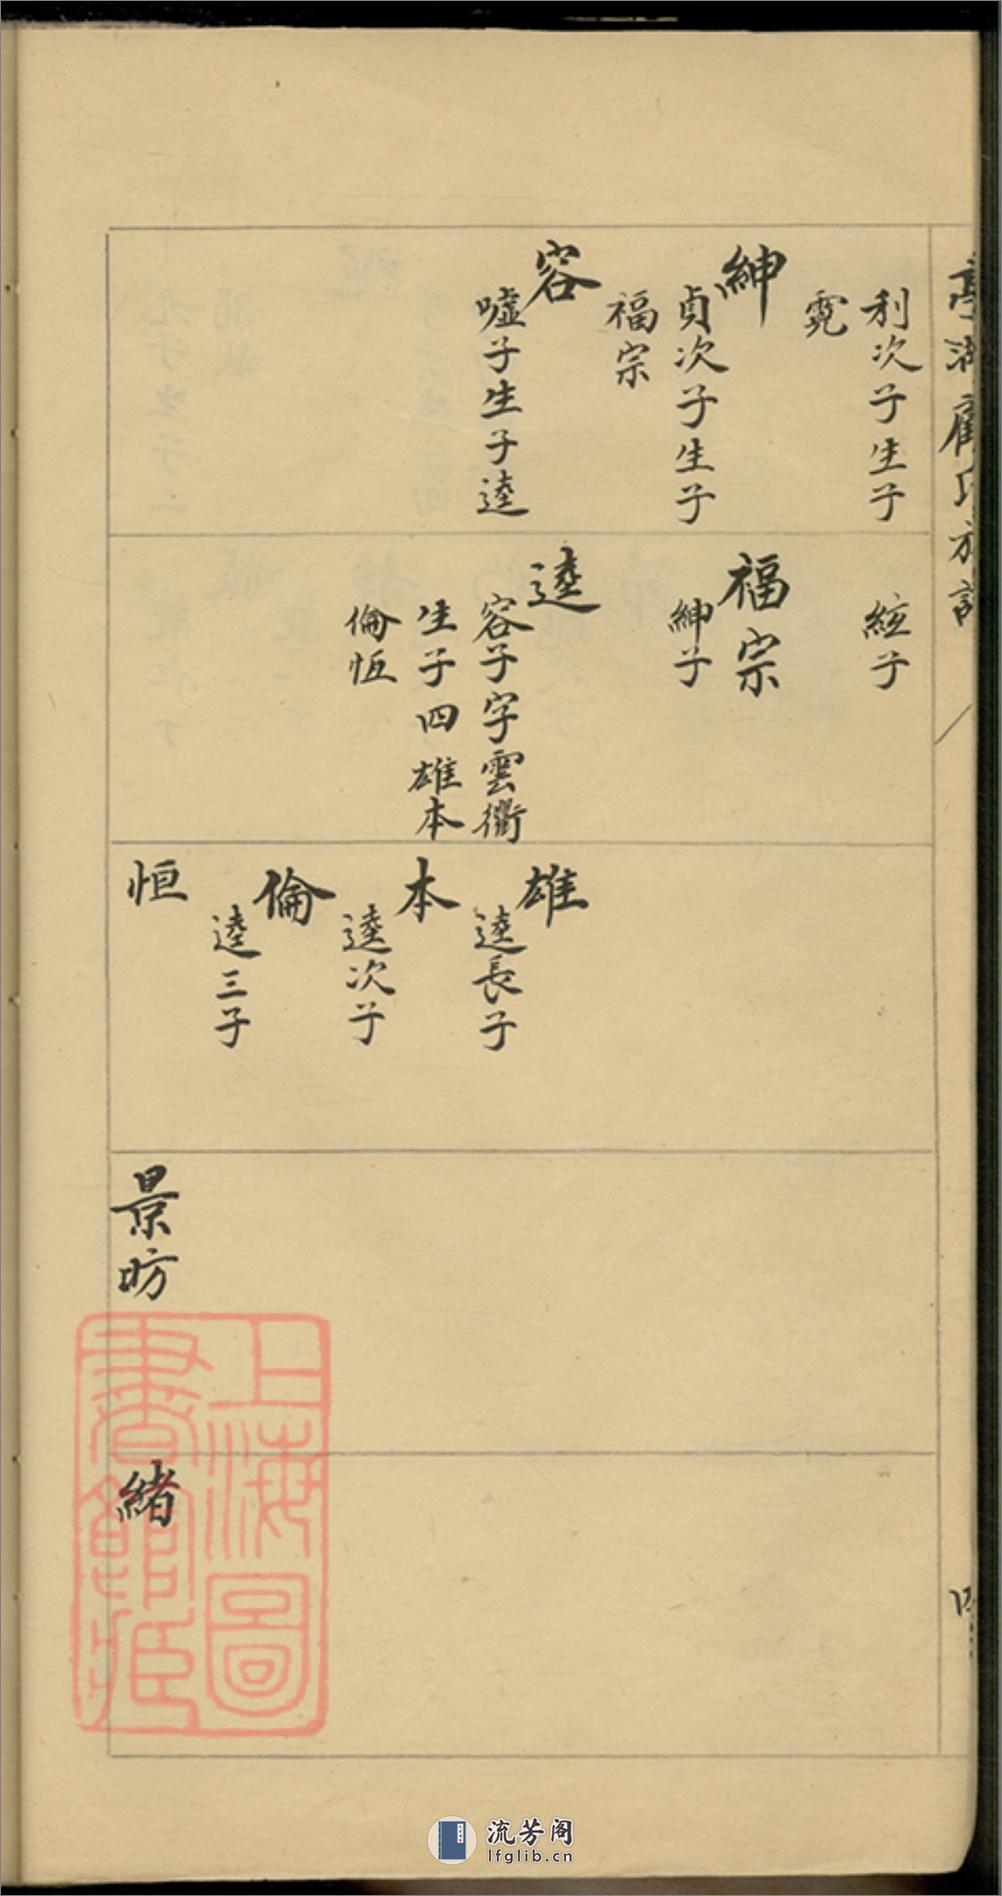 亭湖顧氏族譜
利次子生子
霓
紳
貞次子生子
福宗
容
噓子生子逵
紘子
福宗
紳子
逵
容子字雲衢
生子四雄本
倫恆
雄
逵長子
本
逵次子
倫
逵三子
恒
景昉
緒
上海圖
書館藏
流芳阁
lfglib.cn